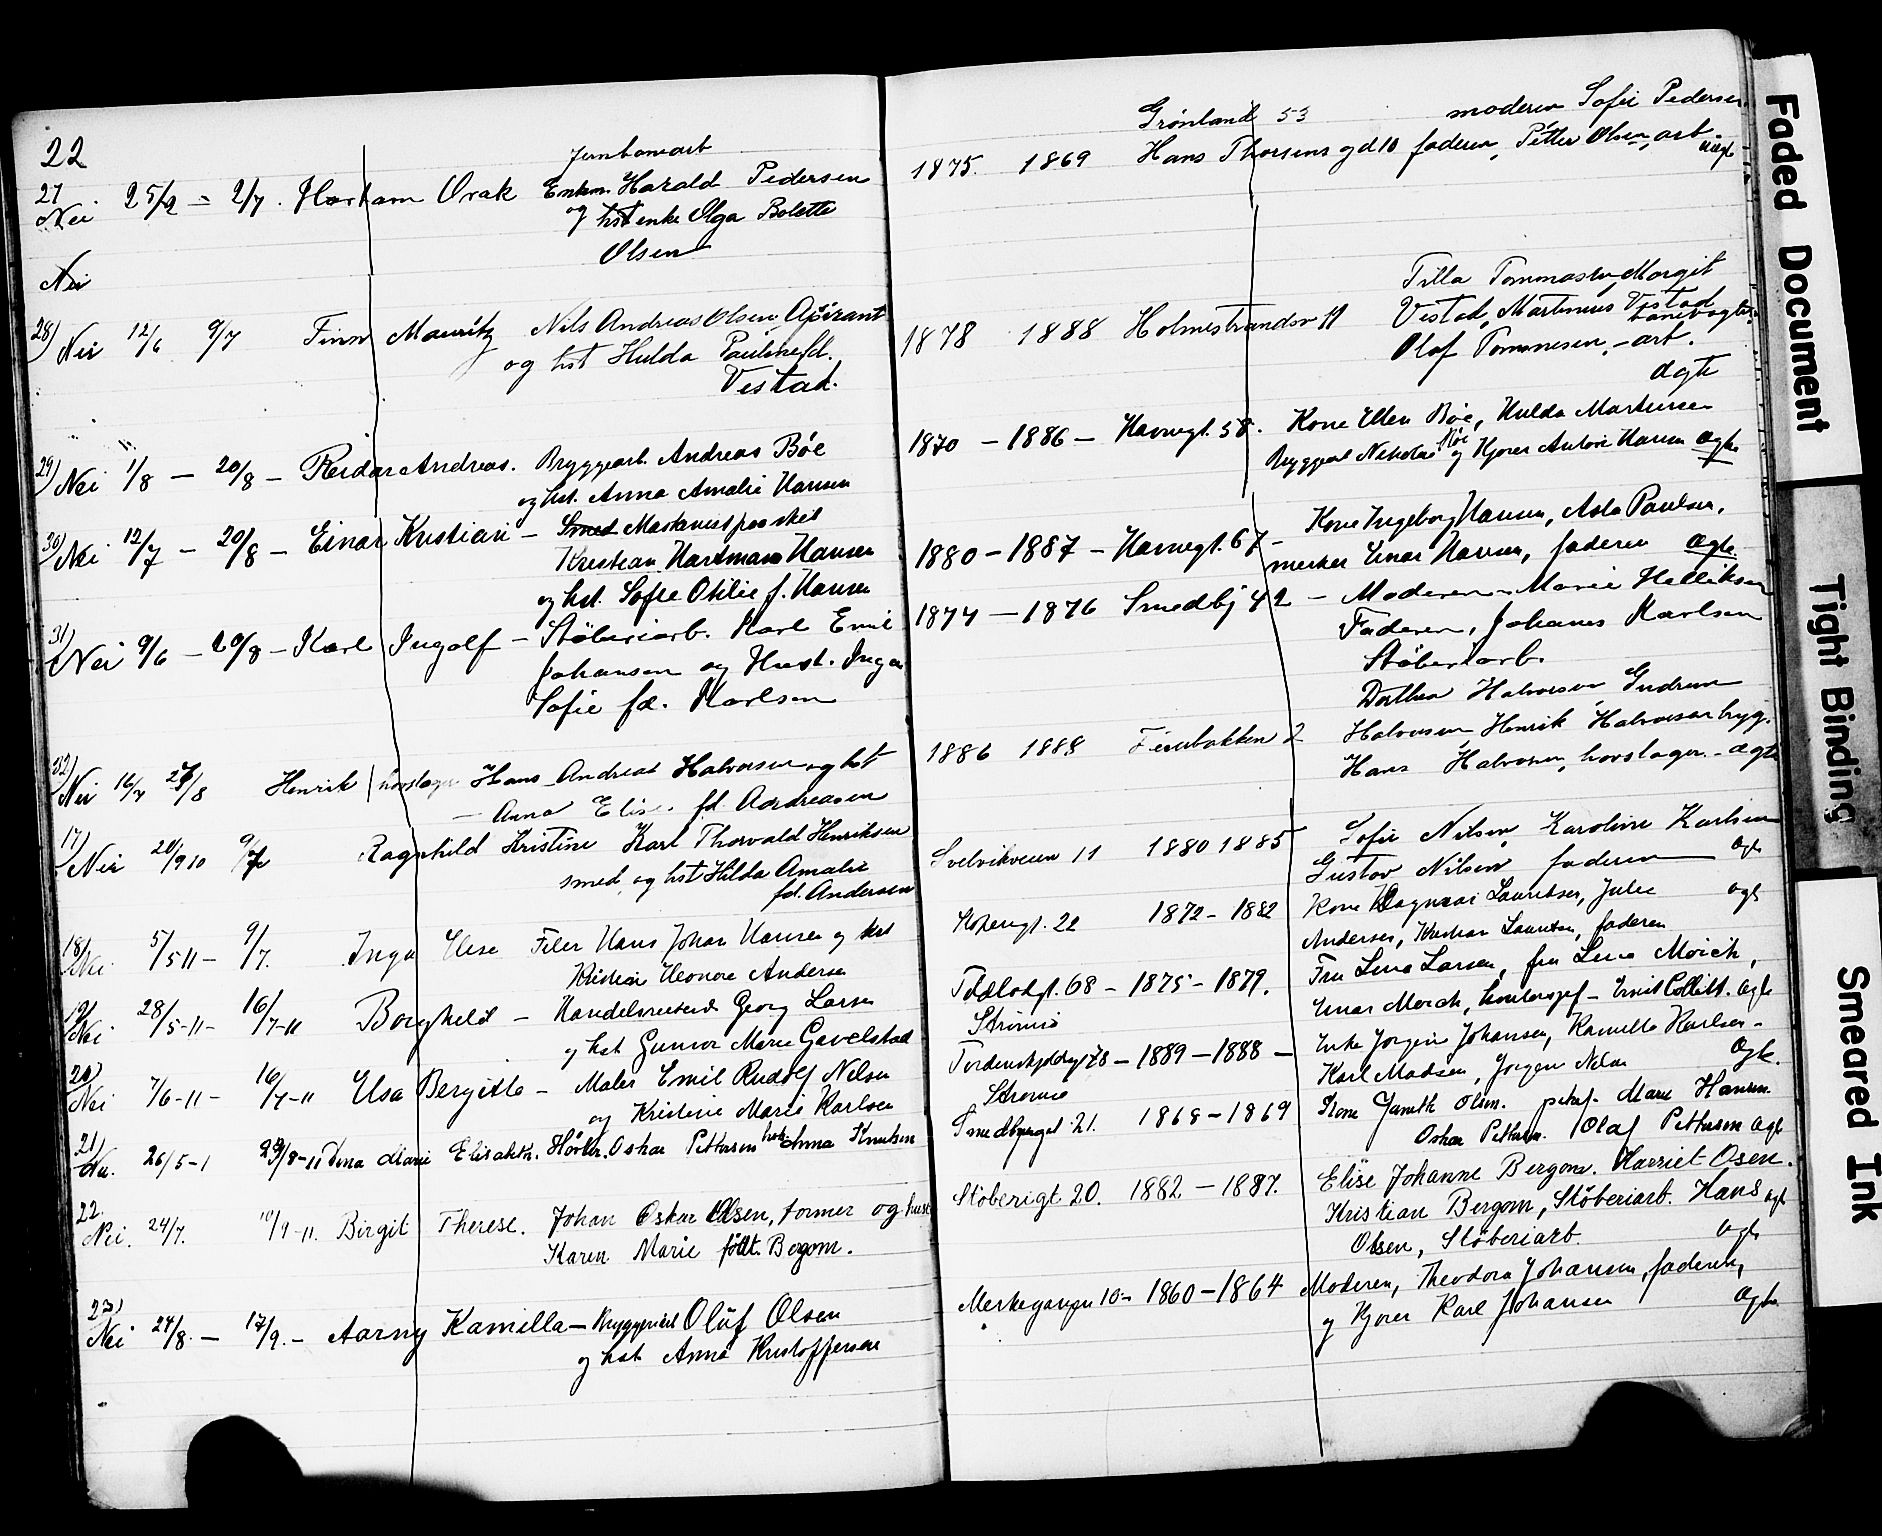 22
27 Jernbanearb
Nei 25/2 = 2/7. Harkam Orak Enkm. Harald Pedersen
og hst enke Olga Bolette
Olsen
Nei
28) Nei 12/6 9/7 Finn Mauritz Nils Andreas Olsen, Aspirant
og hst Hulda Pauline fd.
Vestad.
29) Nei 1/8 — 20/8 — Reidar Andreas. Bryggearb. Andreas Böe
og hst. Anna Amalie Hansen
30) Nei 12/7 — 20/8 — Einar Kristian —
Kristian Hartmann Hansen
og hst. Sofie Otilie f. Hansen
31) Nei 9/6 — 20/8 — Karl Ingolf — Støberiarb. Karl Emil
Johansen og Hust. Inga
Sofie fd. Karlsen
32) Nei 16/7 27/8 Henrik hovslager Hans Andreas Halvorsen og hst
— Anna Elis. fd. Andreasen
17) Nei 20/9 10 9/7 Ragnhild Kristine Karl Thorvald Henriksen
smed, og hst Hilda Amalie
fd. Andersen
18) Nei. 5/5 11 — 9/7. Inga Else Filer Hans Johan Hansen og hst
Kristine Eleonore Andersen
19) Nei 28/5-11- 16/7-11 Borghild — Handelsreisende Georg Larsen
og hst Gunvor Marie Gavelstad
20) Nei 7/6-11- 16/7-11 Elsa Bergitte — Maler Emil Rudolf Nilsen
og Kristine Marie Karlsen
21) Nei. 26/5-1 /8-11 Dina Marie Elisabeth. Oskar Pettersen hst Anna Knutsen
22. Nei. 24/7. 10/9-11. Birgit Therese. Johan Oskar Olsen, former og hust
Karen Marie født Bergom.
23) Nei 24/8. — 17/9. — Aarny Kamilla — Oluf Olsen
og hst Anna Kristoffersen
Grønland 53 moderen Sofie Pedersen
1875. 1869 Hans Thorsens gd 10 faderen, Petter Olsen, arb. uægte
Tilla Tommasen, Margit
1878 1888 Holmestrandsv 11 Vestad, Martinius Vestad banevogter
Olaf Tommesen, — arb.
ægte
1870 — 1886 — Havnegt. 58. Kone Ellen Böe, Hulda Martinsen
Bryggearb Nikolai Böe og Kjører Antone Hansen ægte
1880 — 1887 — Havnegt. 67 — Kone Ingeborg Hansen, Asta Paulsen,
Einar Hansen, faderen ægte
1874 — 1876 Smedbj 42 — Moderen — Marie Helliksen
Faderen, Johanes Karlsen
Støberiarb.
Dorthea Halvorsen, Gudrun
1886 1888 2 Halvorsen Henrik Halvorsen brygg.
Hans Halvorsen, hovslager — ægte
Svelvikveien 11 1880 1885 Sofie Nilsen, Karoline Karlsen
Gustav Nilsen faderen ægte
22 1872 — 1882 Kone Dagmar Lauritsen, Julie ægte
Andersen, Lauritsen, faderen
68 — 1875 — 1879. Fru Lina Larsen, fru Lina Mørch,
Strømsø Einar Mørch, ægte
Tordenskjoldsgt 78 — 1889 — 1888 — Enke Jørgine Johansen, Kamilla Karlsen —
Strømsø Karl Madsen, Jørgen Nilsen ægte.
Smedbjerget 21. 1868 — 1869 Kone Olsen. Marie Hansen
Oskar Pettersen. Olaf Pettersen ægte
Støberigt 20. 1882 — 1887. Elise Johanne Bergom. Harriet Osen.
Kristian Bergom, Støberiarb. Hans ægte
Olsen, Støberiarb. ægte
10 — 1860 — 1864 Moderen, Theodora Johansen, faderen,
og Kjører Karl Johansen ægte
Faded Document
Tight Binding
Smeared Ink